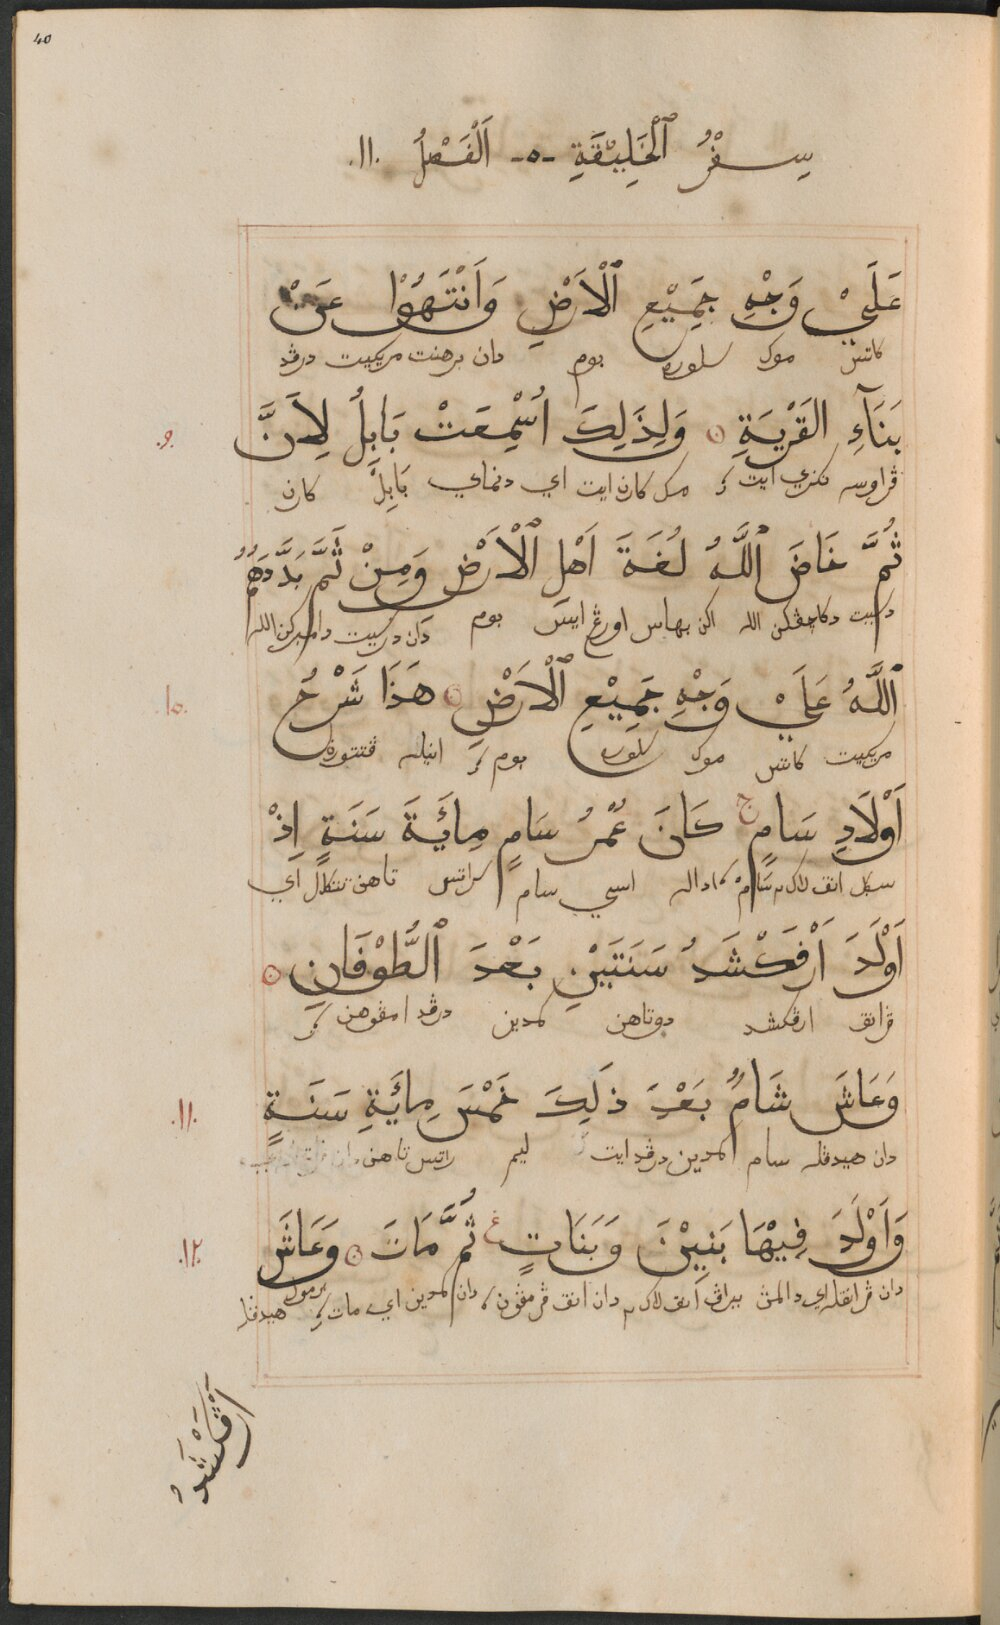 40
سِفْرُ ٱلْخَلِيْقَةِ -٥- اَلْفَصْلُ .١١.
عَلَيْ وَجْهِ جَمِيْعِ ٱلْاَرْضِ وَاَنْتَهَوْا عَنْ
كاتس موك سلوره بوم دان برهنت مريكيت درڤد
بَنَآءِ القَرْيَةِ ۞ وَلِذَلِكَ اُسْمِعَتْ بَابِلُ لِاَنَّ
.٩.
ڤراوسه نكري ايت مك كارن ايت اي دنماي بَابِلُ كارن
ثُمَّ خَاضَ ٱللّٰهُ لُغَةَ اَهْلِ ٱلْاَرْضِ وَمِنْ ثَمَّ بَدَّدَهُمُ
دسيت دكاچڤكن الله اكن بهاس اورڠ ايسى بوم دان درسيت دامبركن الله
ٱللّٰهُ عَلَيْ وَجْهِ جَمِيْعِ ٱلْاَرْضِ ۞ هَذَا شَرْحُ
.١٠.
مريكيت كاتس موك سلوره بوم انيله ڤنتوره
اَوْلَادِ سَامٍ ج كَانَ عُمْرُ سَامٍ مِائَةَ سَنَةٍ اِذْ
سڬل انق لاك٢ سَامْ اداله اسي سام سراتس تاهن تتكال اي
اَوْلَدَ اَرْفَكْشَدُ سَنَتَيْنِ بَعْدَ ٱلطُّوْفَانِ ۞
ڤرانق ارفكشد دوتاهن كمدين درڤد امڤوهن
وَعَاشَ شَامٌ بَعْدَ ذَلِكَ خَمْسَ مِائَةِ سَنَةٍ
.١١.
دان هيدڤله سام كمدين درڤد ايت ليم راتس تاهن
وَاَوْلَدَ فِيْهَا بَنِيْنَ وَبَنَاتٍ ع ثُمَّ مَاتَ ۞ وَعَاشَ
.١٢.
دان ڤرانقله اي دالمڽ ببراڤ انق لاك٢ دان انق ڤرمڤون دان كمدين اي مات برمول هيدڤله
اَرْفَكْشَدُ